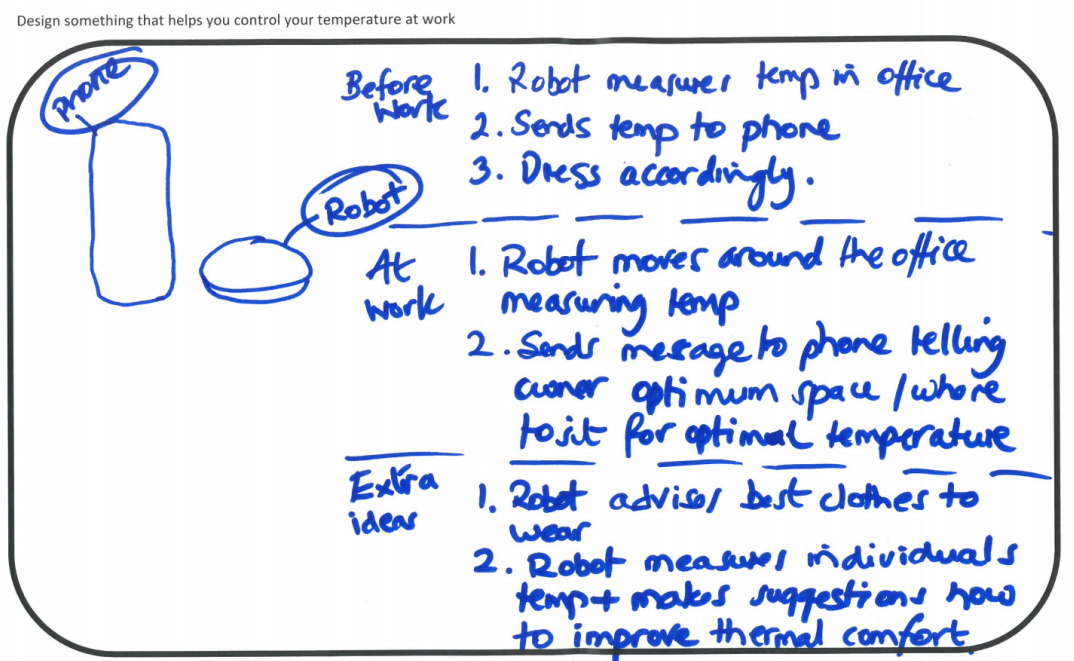 Design something that helps you control your temperature at work
PHONE
Before
Work
1. Robot measures temp in office
2. Sends temp to phone
3. Dress accordingly.
Robot
At
work
1. Robot moves around the office
measuring temp
2. Sends message to phone telling
owner optimum space / where
to sit for optimal temperature
Extra
ideas
1. Robot advises best clothes to
wear
2. Robot measures individuals
temp + makes suggestions how
to improve thermal comfort.